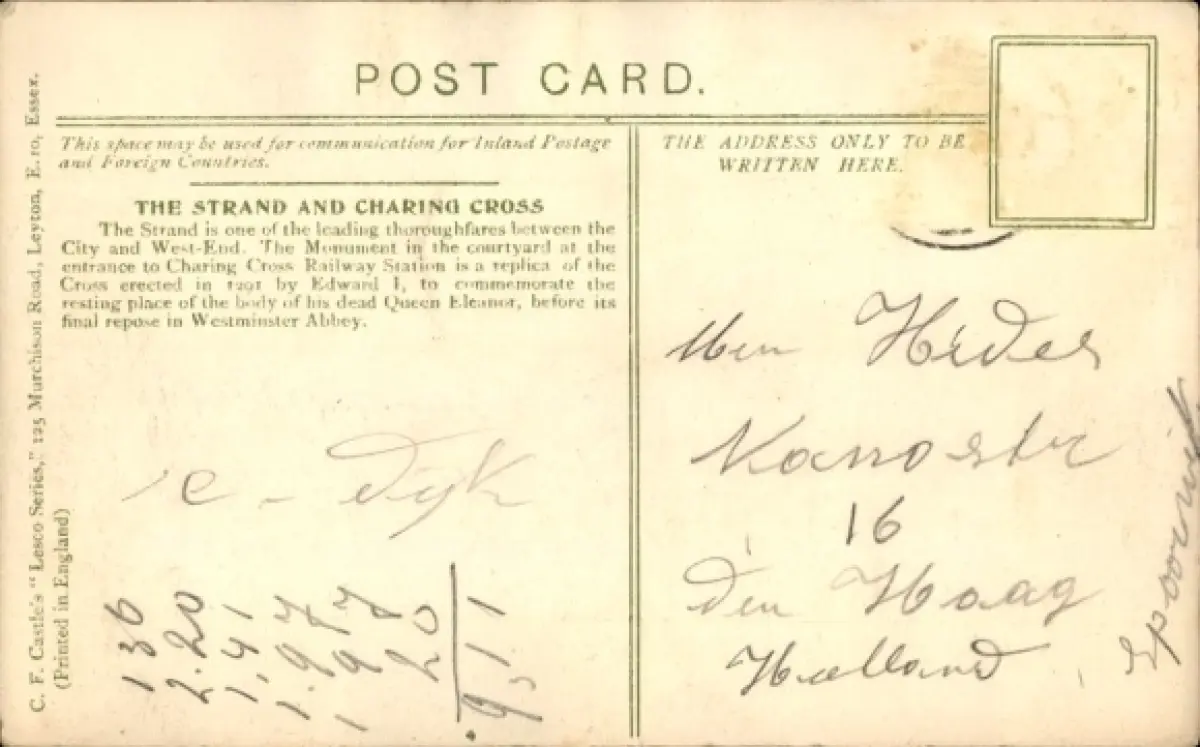 POST CARD.
This space may be used for communication for Inland Postage
and Foreign Countries.
THE STRAND AND CHARING CROSS
The Strand is one of the leading thoroughfares between the
City and West-End. The Monument in the courtyard at the
entrance to Charing Cross Railway Station is a replica of the
Cross erected in 1291 by Edward I, to commemorate the
resting place of the body of his dead Queen Eleanor, before its
final repose in Westminster Abbey.
C. F. Castle's "Lesco Series," 125 Murchison Road, Leyton, E. 10, Essex.
(Printed in England)
C - Dijk
1 36
2.20
1,41
1.97
1 97
20
9,11
THE ADDRESS ONLY TO BE
WRITTEN HERE.
16
Den Haag
Holland